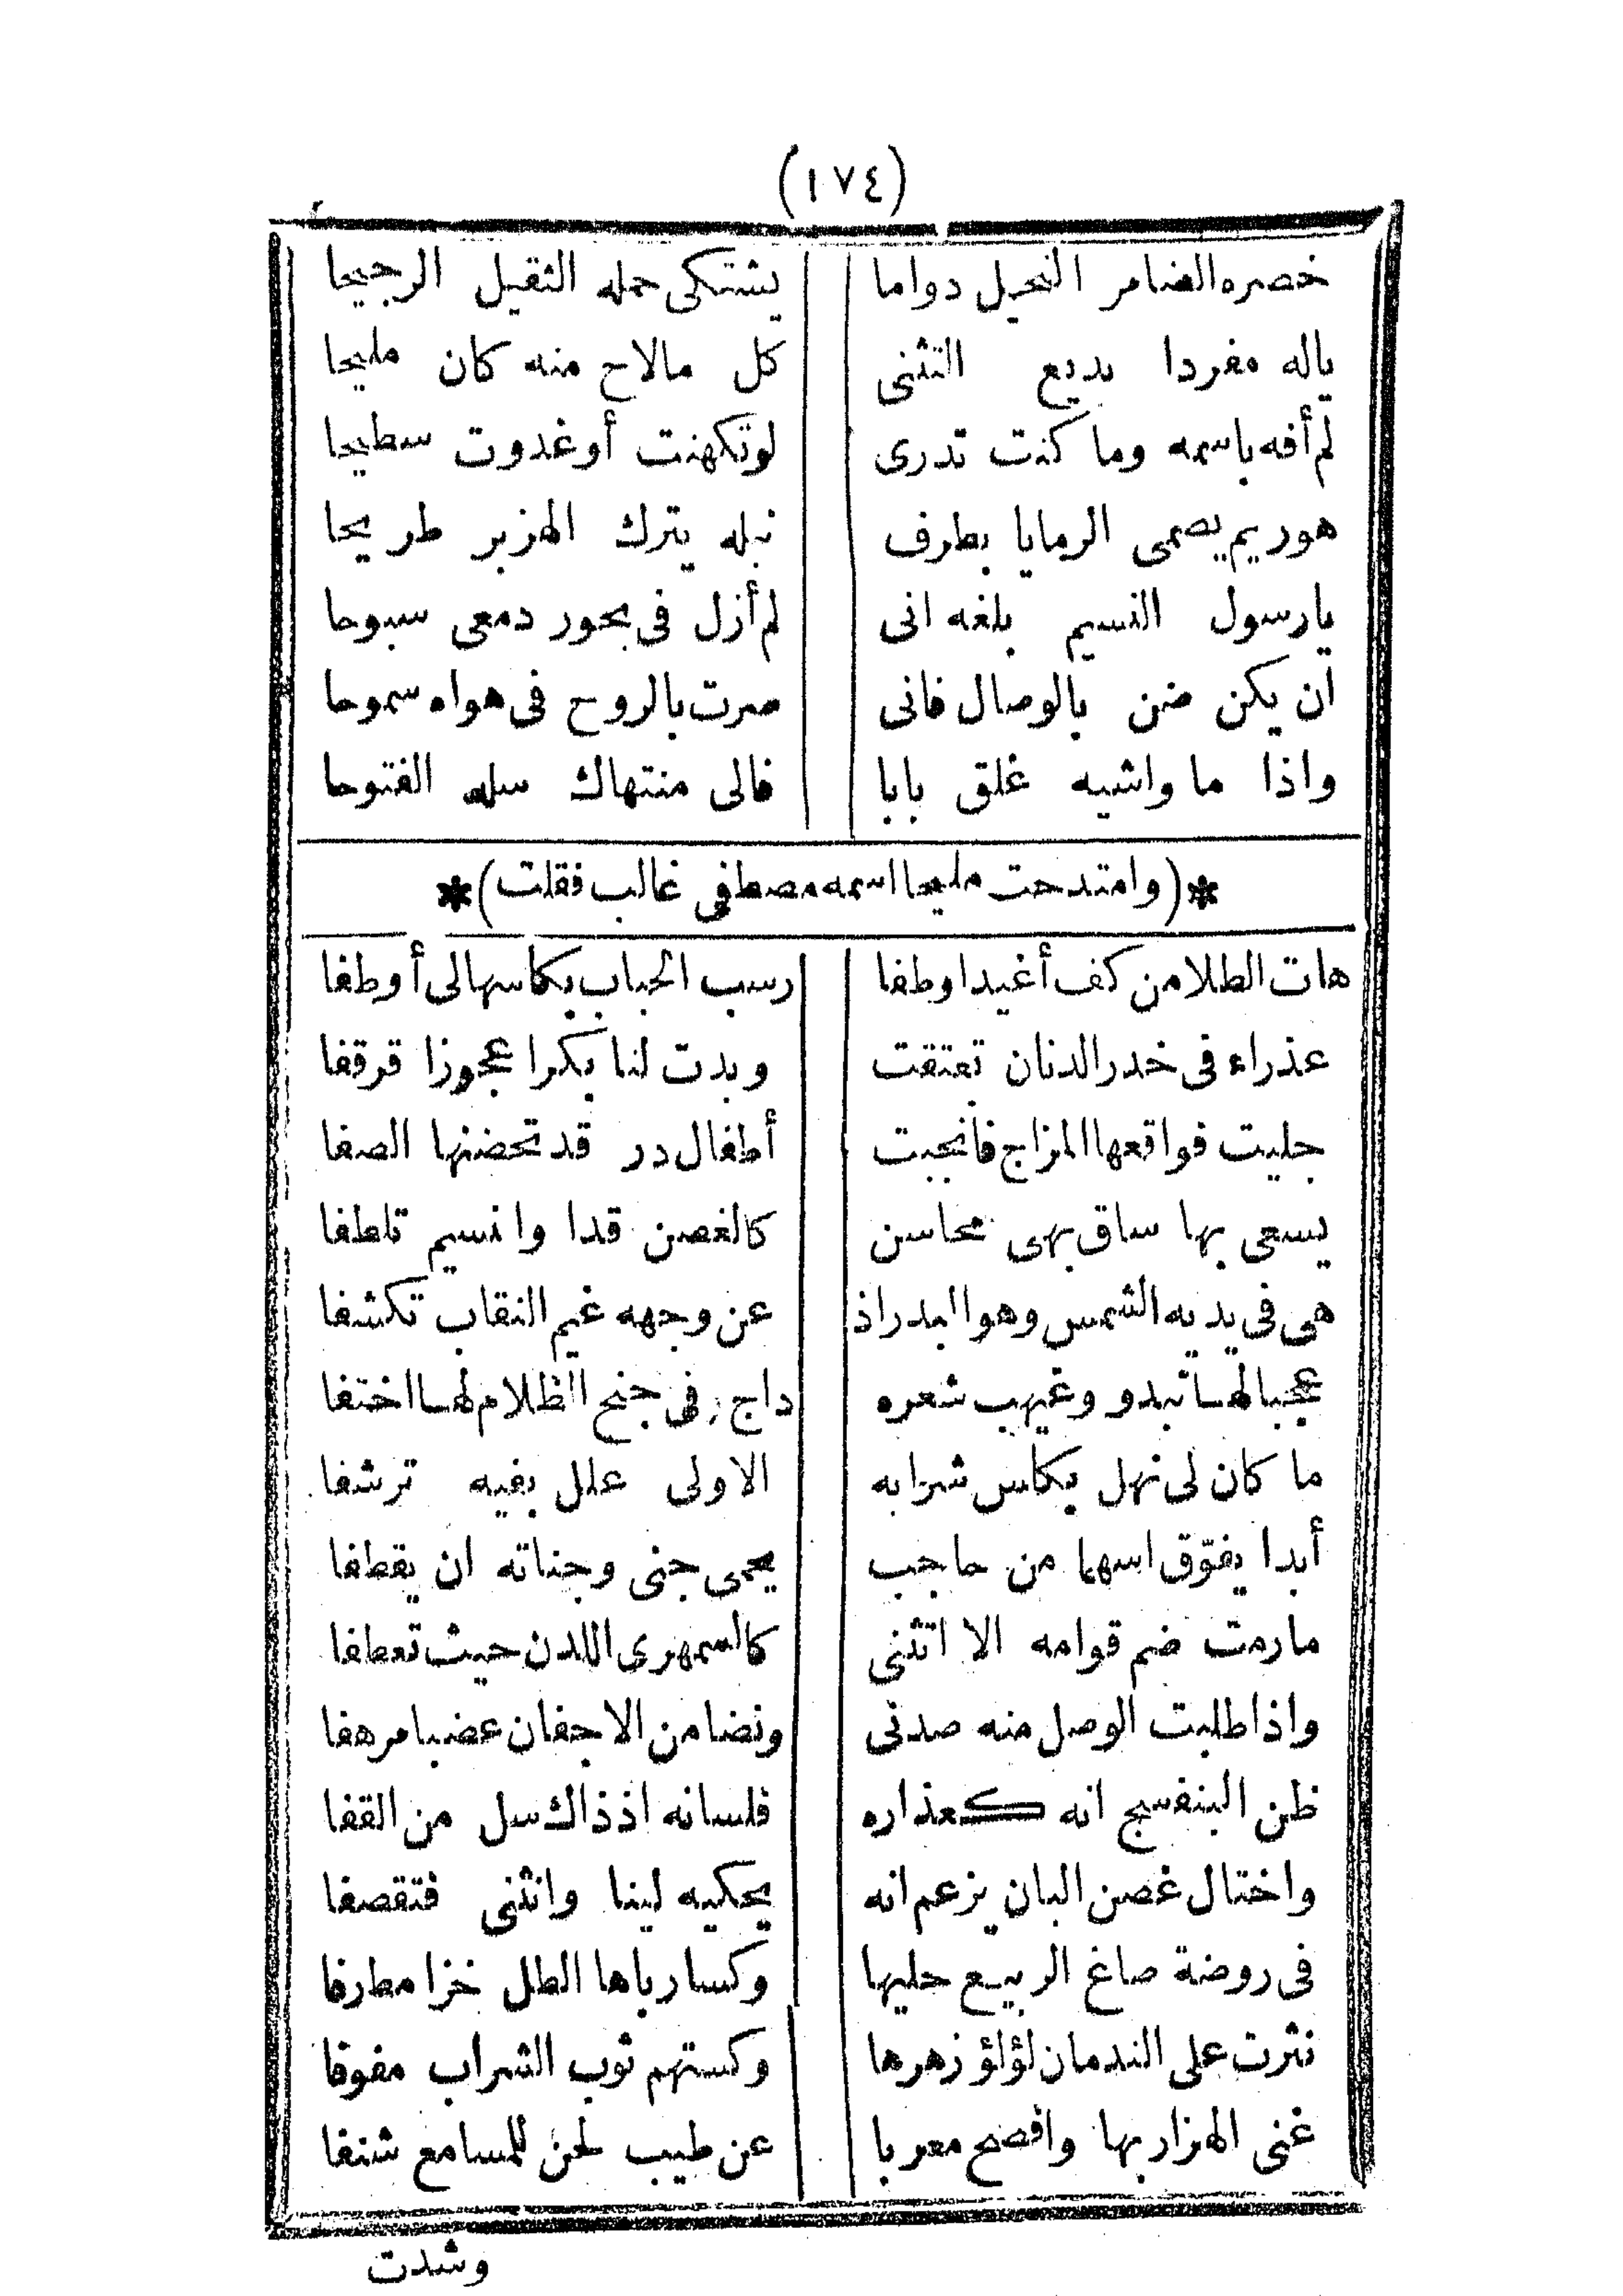 (١٧٤)
خصره الضامر النحيل دواما يشتكى حمله الثقيل الرجيحا
ياله مفردا بديع التثنى كل مالاح منه كان مليحا
لم أفه باسمه وما كنت تدرى لوتكهنت أوغدوت سطيحا
هوريم يصمى الرمايا بطرف نبله يترك الهزبر طريحا
يارسول النسيم بلغه انى لم أزل فى بحور دمعى سبوحا
ان يكن ضن بالوصال فانى صرت بالروح فى هواه سموحا
واذا ما واشيه غلق بابا فالى منتهاك سله الفتوحا
*(وامتدحت مليحا اسمه مصطفى غالب فقلت)*
هات الطلا من كف أغيد اوطفا رسب الحباب بكاسها لى أوطفا
عذراء فى خدر الدنان تعتقت وبدت لنا بكرا عجوزا قرقفا
جليت فواقعها المزاج فانجبت أطفال در قد تحضنها الصفا
يسعى بها ساق بهى محاسن كالغصن قدا وانسيم تلطفا
هى فى يديه الشمس وهو البدر اذ عن وجهه غيم النقاب تكشفا
عجبا لها تبدو وغيهب شعره داج وفى جنح الظلام لها اختفا
ما كان لى نهل بكاس شرابه الاولى علل بفيه ترشفا
أبدا يفوّق اسهما من حاجب يحمى جنى وجناته ان يقطفا
مارمت ضم قوامه الا اتثنى كالسمهرى اللدن حيث تعطفا
واذا طلبت الوصل منه صدنى ونضا من الاجفان عضبا مرهفا
ظن البنفسج انه كعذاره فلسانه اذ ذاك سل من القفا
واختال غصن البان يزعم انه يحكيه لينا وانثنى فتقصفا
فى روضة صاغ الربيع حليها وكسا رباها الطل خزا مطرفا
نثرت على الندمان لؤلؤ زهرها وكستهم ثوب الشراب مفوفا
غنى الهزار بها وافصح معربا عن طيب لحن للمسامع شنفا
وشدت